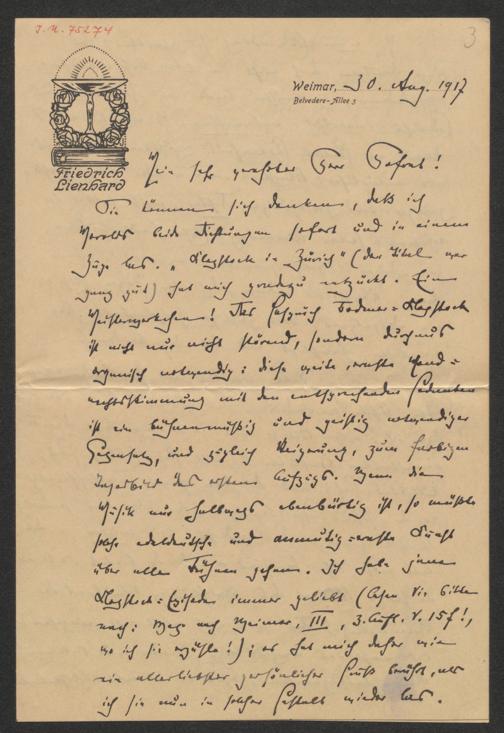 I.N. 75274
3
Friedrich
Lienhard
Weimar, 30. Aug. 1917
Belvedere-Allee 3
Mein sehr geehrter Herr Hofrat!
Sie können sich denken, daß ich
beide Dichtungen sofort und in einem
Zuge las. „Klopstock in Zürich" (der Titel war
ganz gut) hat mich geradezu entzückt. Ein
Meisterwerkchen! Das Gespräch Bodmer-Klopstock
ist nicht nur nicht störend, sondern durchaus
organisch notwendig: diese zweite, ernste
mit den entsprechenden Gedanken
ist ein bühnenmäßig und geistig notwendiger
Gegensatz, und zugleich Steigerung, zum farbigen
des ersten Aufzugs. Wenn die
Musik nur halbwegs ebenbürtig ist, so müßte
solche edeldeutsche und anmutig-ernste Kunst
über alle Bühnen gehen. Ich habe jene
Klopstock-Episoden immer geliebt (lesen Sie bitte
nach: Wege nach Weimar, III, 3. Aufl. S. 15f!,
wo ich sie erzähle!); es hat mich daher wie
ein allerliebster persönlicher Gruß berührt, als
ich sie nun in solcher Gestalt wieder las.